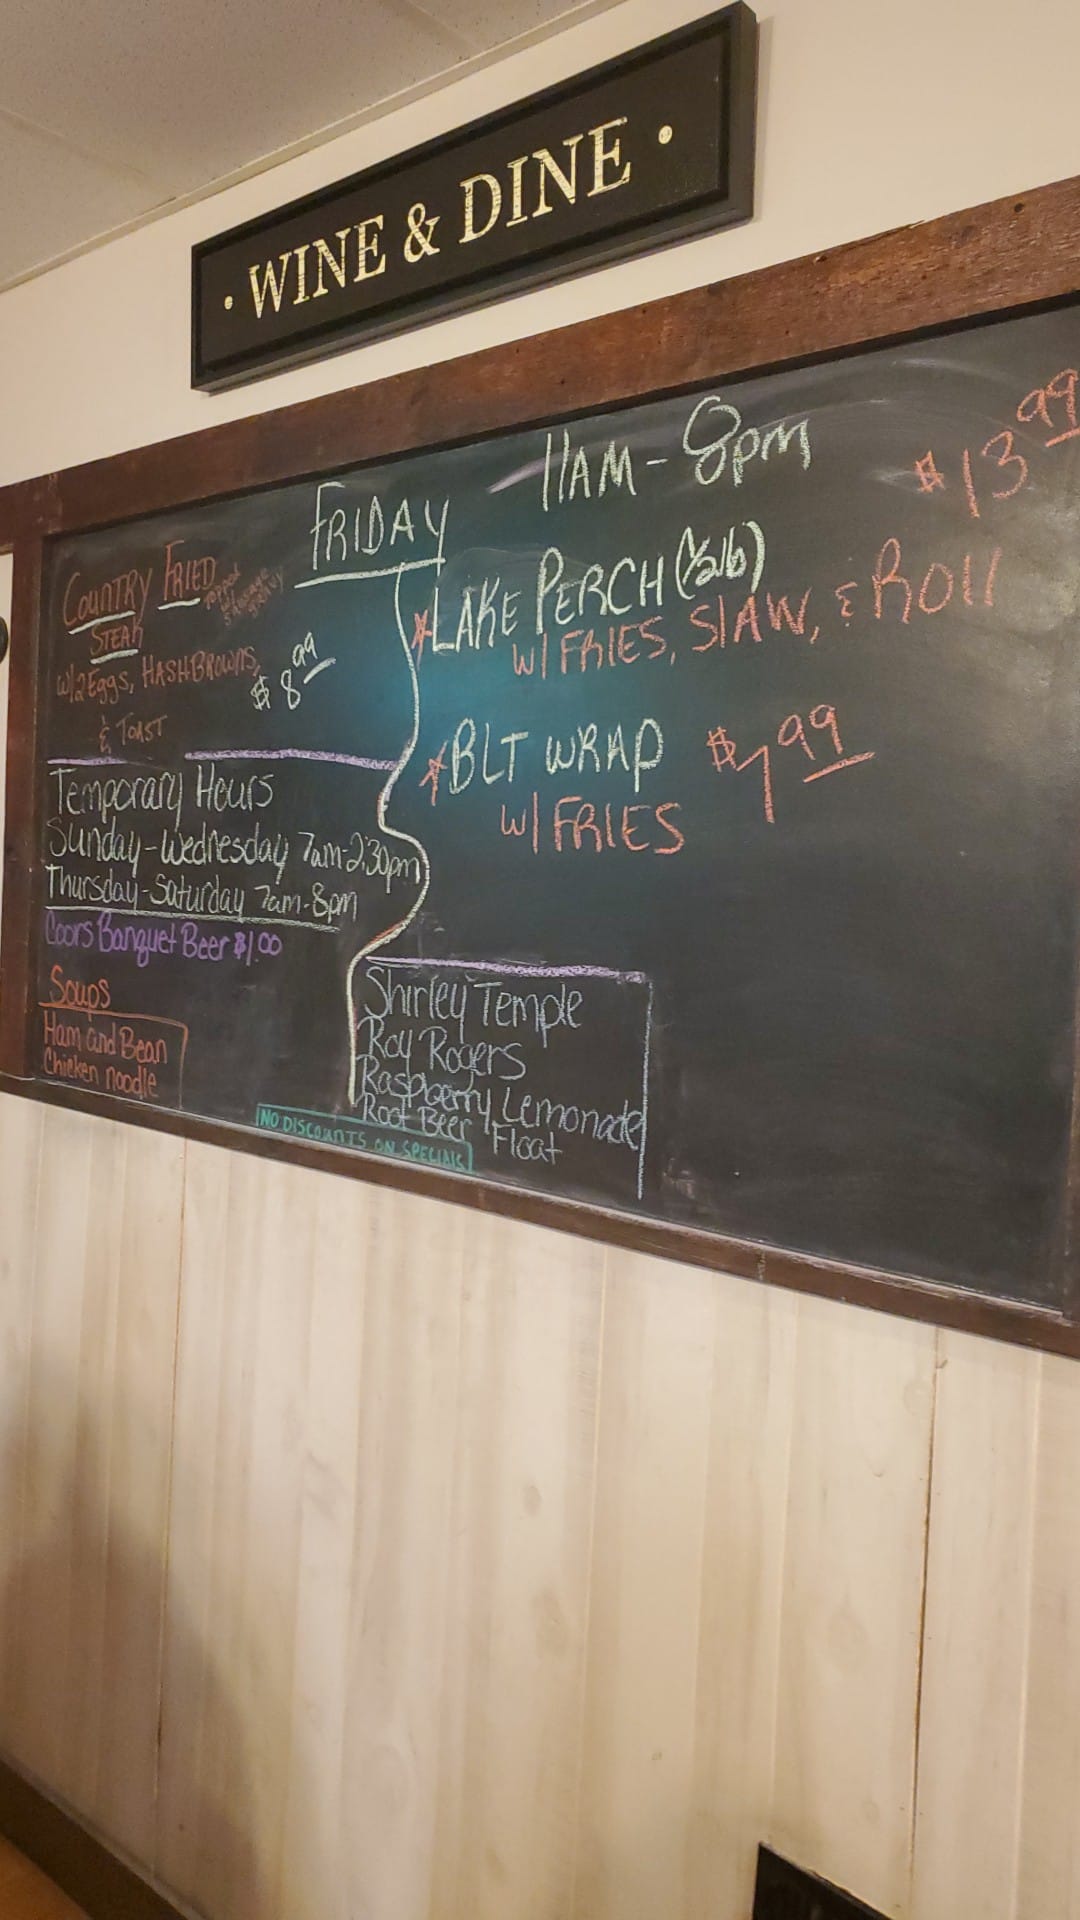 • WINE & DINE •
FRIDAY
11AM - 8pm
COUNTRY FRIED
STEAK
Topped
w/ Sausage
GRAVY
w/ 2 Eggs, HASHBROWNS,
& TOAST
$8.99
Temporary Hours
Sunday-Wednesday 7am-2:30pm
Thursday-Saturday 7am-8pm
Coors Banquet Beer $1.00
Soups
Ham and Bean
Chicken noodle
$13.99
*LAKE PERCH (1/2lb)
w/ FRIES, SlAW, & ROll
*BLT WRAP $7.99
w/ FRIES
Shirley Temple
Roy Rogers
Raspberry Lemonade
Root Beer Float
NO DISCOUNTS ON SPECIALS